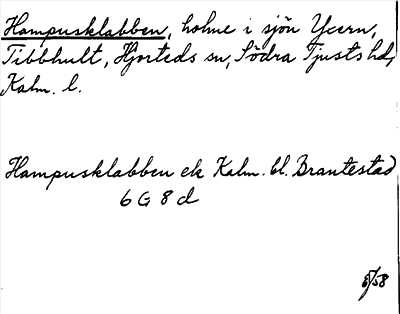 Hampusklabben, holme i sjön Ycern,
Tibbhult, Hjorteds sn, Södra Tjusts hd,
Kalm. l.
Hampusklabben ek Kalm. bl. Brantestad
6 G 8 d
8/58